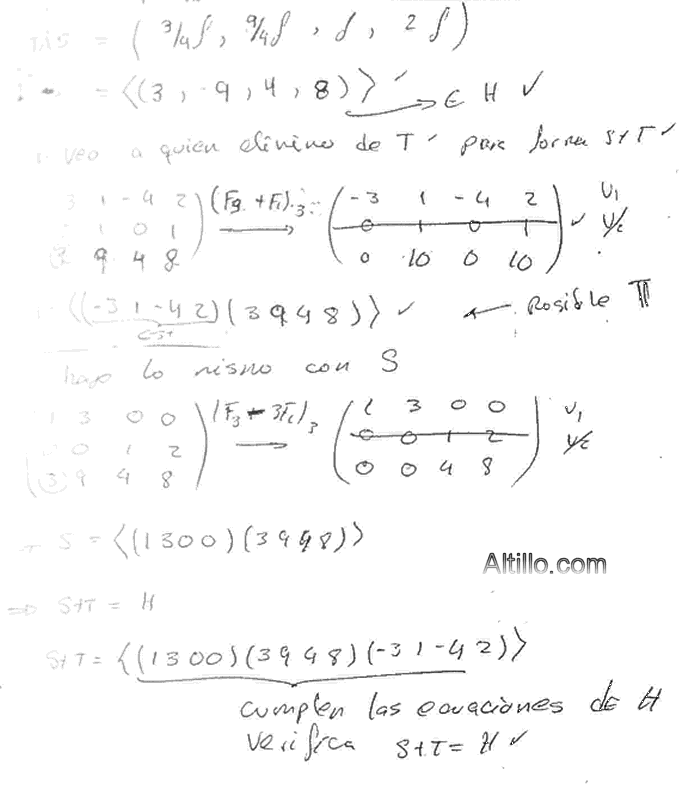 = ( 3/4 f, 9/4 f, f, 2 f)
= ⟨(3, 9, 4, 8)⟩ → ∈ H ✓
veo a quien elimino de T para formar S+T
3 1 -4 2 (F3 + F1).3 -3 1 -4 2 V1
1 0 1 → 0 1 0 1 ✓
9 4 8 0 10 0 10
⟨(-3 1 -4 2)(3 9 4 8)⟩ ✓ ← Posible T
hago lo mismo con S
1 3 0 0 (F3 - 3F1)3 1 3 0 0 V1
0 1 2 → 0 0 1 2
(3) 9 4 8 0 0 4 8
→ S = ⟨(1 3 0 0)(3 9 4 8)⟩
Altillo.com
⇒ S+T = H
S+T = ⟨(1 3 0 0)(3 9 4 8)(-3 1 -4 2)⟩
cumplen las ecuaciones de H
Verifica S+T = H ✓